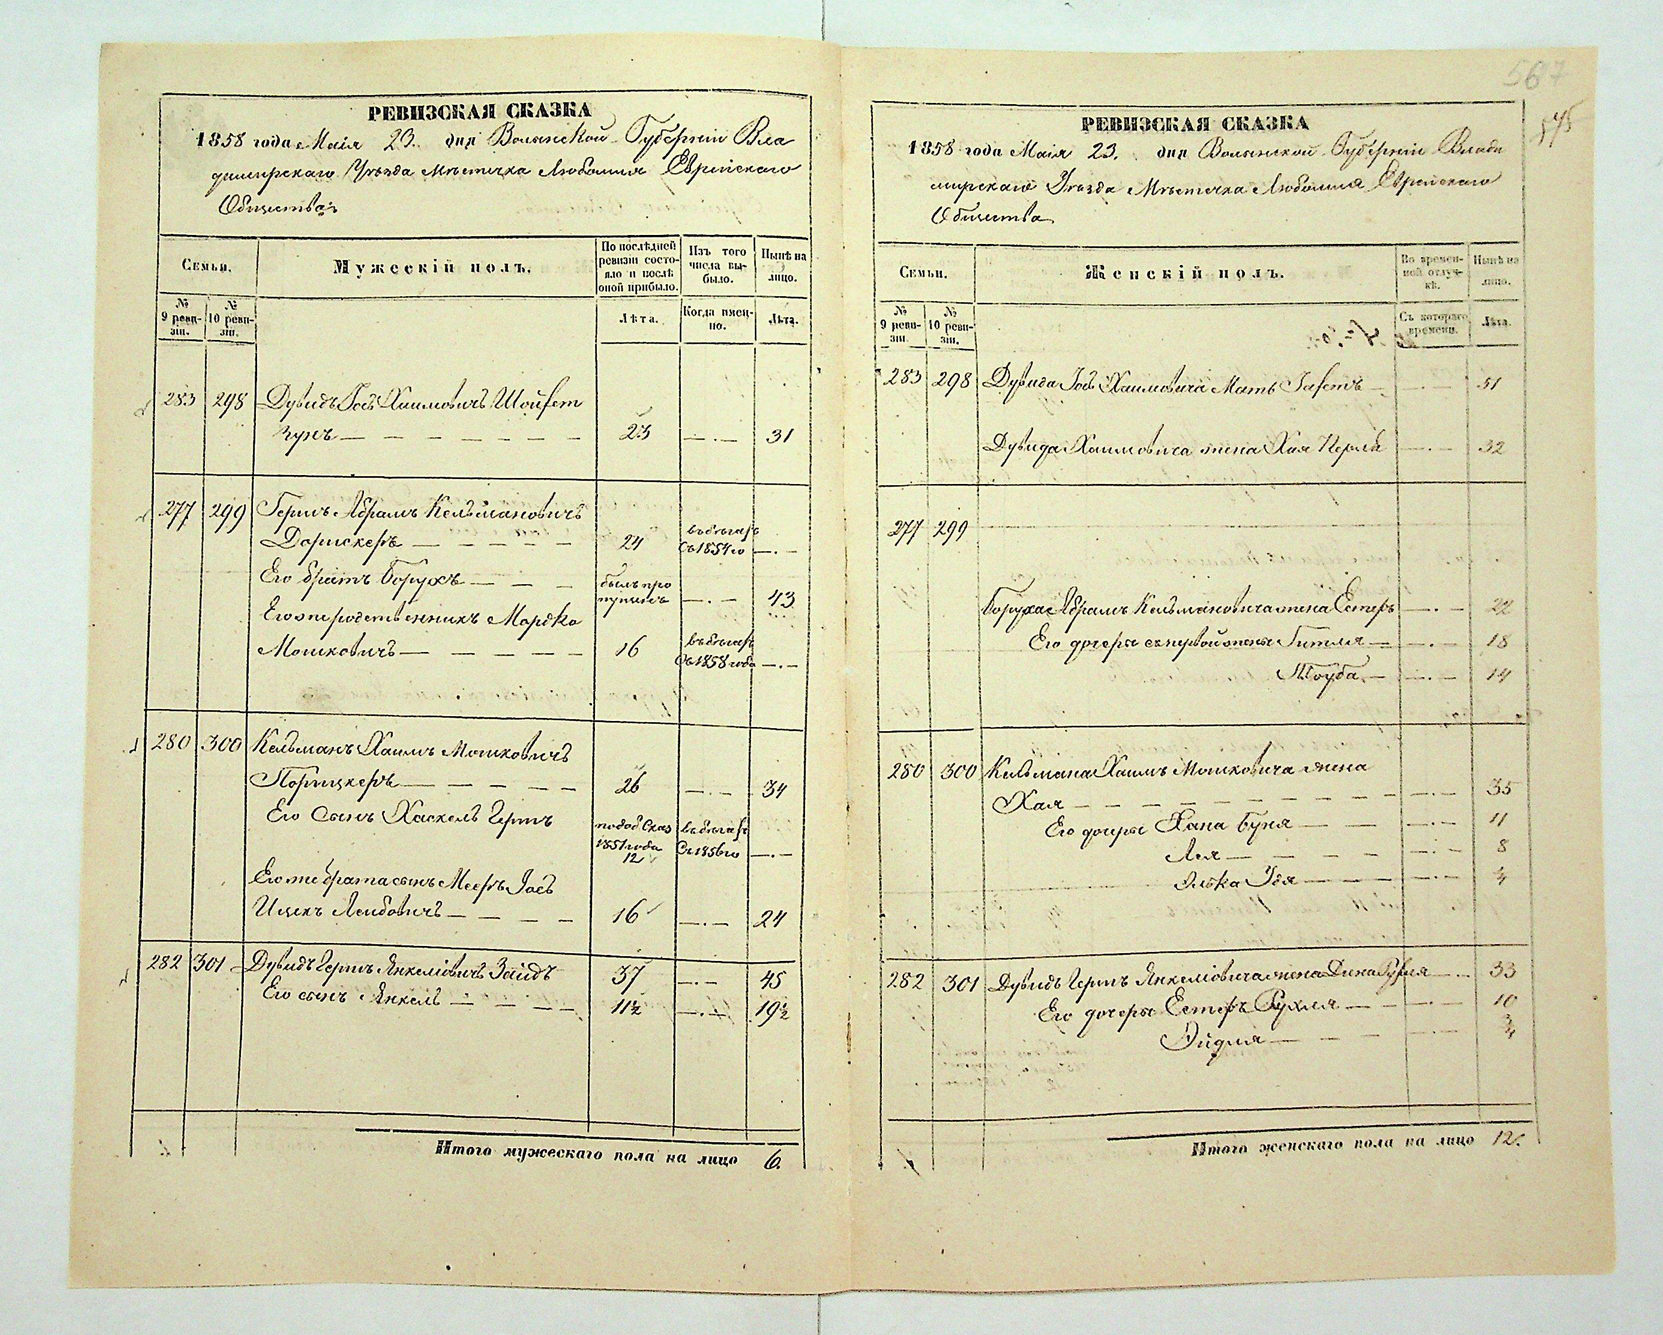 567
545
РЕВИЗСКАЯ СКАЗКА
1858 года Маія 23. дня Волынской Губерніи Вла
димирскаго Уѣзда Мѣстечка Любомля Еврейскаго
Общества
Семьи.
Мужескій полъ.
По послѣдней ревизіи состояло и послѣ оной прибыло.
Изъ того числа выбыло.
Нынѣ на лицо.
№ 9 ревизіи.
№ 10 ревизіи.
Лѣта.
Когда именно.
Лѣта.
283 298 Дувидъ Іось Хаимовичъ Шойхет
зунъ — 23 —.— 31
277 299 Гершъ Абрамъ Кельмановичъ
Доришкеръ — 24 въ бѣгахъ съ 1854 го —.—
Его братъ Борухъ — былъ пропущенъ —.— 43
Его родственникъ Мордко
Мошковичъ — 16 въ бѣгахъ съ 1858 года —.—
280 300 Кельманъ Хаимъ Мошковичъ
Порицкеръ — 26 —.— 34
Его сынъ Хаскель Гершъ
по доб сказ 1851 года 12 въ бѣгахъ съ 1856 го —.—
Его же брата сынъ Мееръ Іось
Ицекъ Лейбовичъ — 16 —.— 24
282 301 Дувидъ Гершъ Янкелiовичъ Зайдъ 37 —.— 45
Его сынъ Янкель — 11½ —.— 19½
Итого мужескаго пола на лицо 6.
РЕВИЗСКАЯ СКАЗКА
1858 года Маія 23. дня Волынской Губерніи Влади
мирскаго Уѣзда Мѣстечка Любомля Еврейскаго
Общества
Семьи.
Женскій полъ.
Во временной отлучкѣ.
Нынѣ на лицо.
№ 9 ревизіи.
№ 10 ревизіи.
Съ котораго времени.
Лѣта.
283 298 Дувида Іося Хаимовича Мать —.— 51
Дувида Хаимовича жена Хая Перля —.— 32
277 299
Боруха Абрамъ Кельмановича жена Естеръ —.— 22
Его дочеры съ первой жены Гитля —.— 18
Тоуба —.— 14
280 300 Кельмана Хаимъ Мошковича жена
Хая — —.— 35
Его дочеры Хана Буня —.— 11
Лея — —.— 8
Элька Идя — —.— 4
282 301 Дувидъ Герша Янкелiовича жена Дина Рухля —.— 33
Его дочеры Естеръ Рухля —.— 10
Эйдля — —.— ¾
Итого женскаго пола на лицо 12.